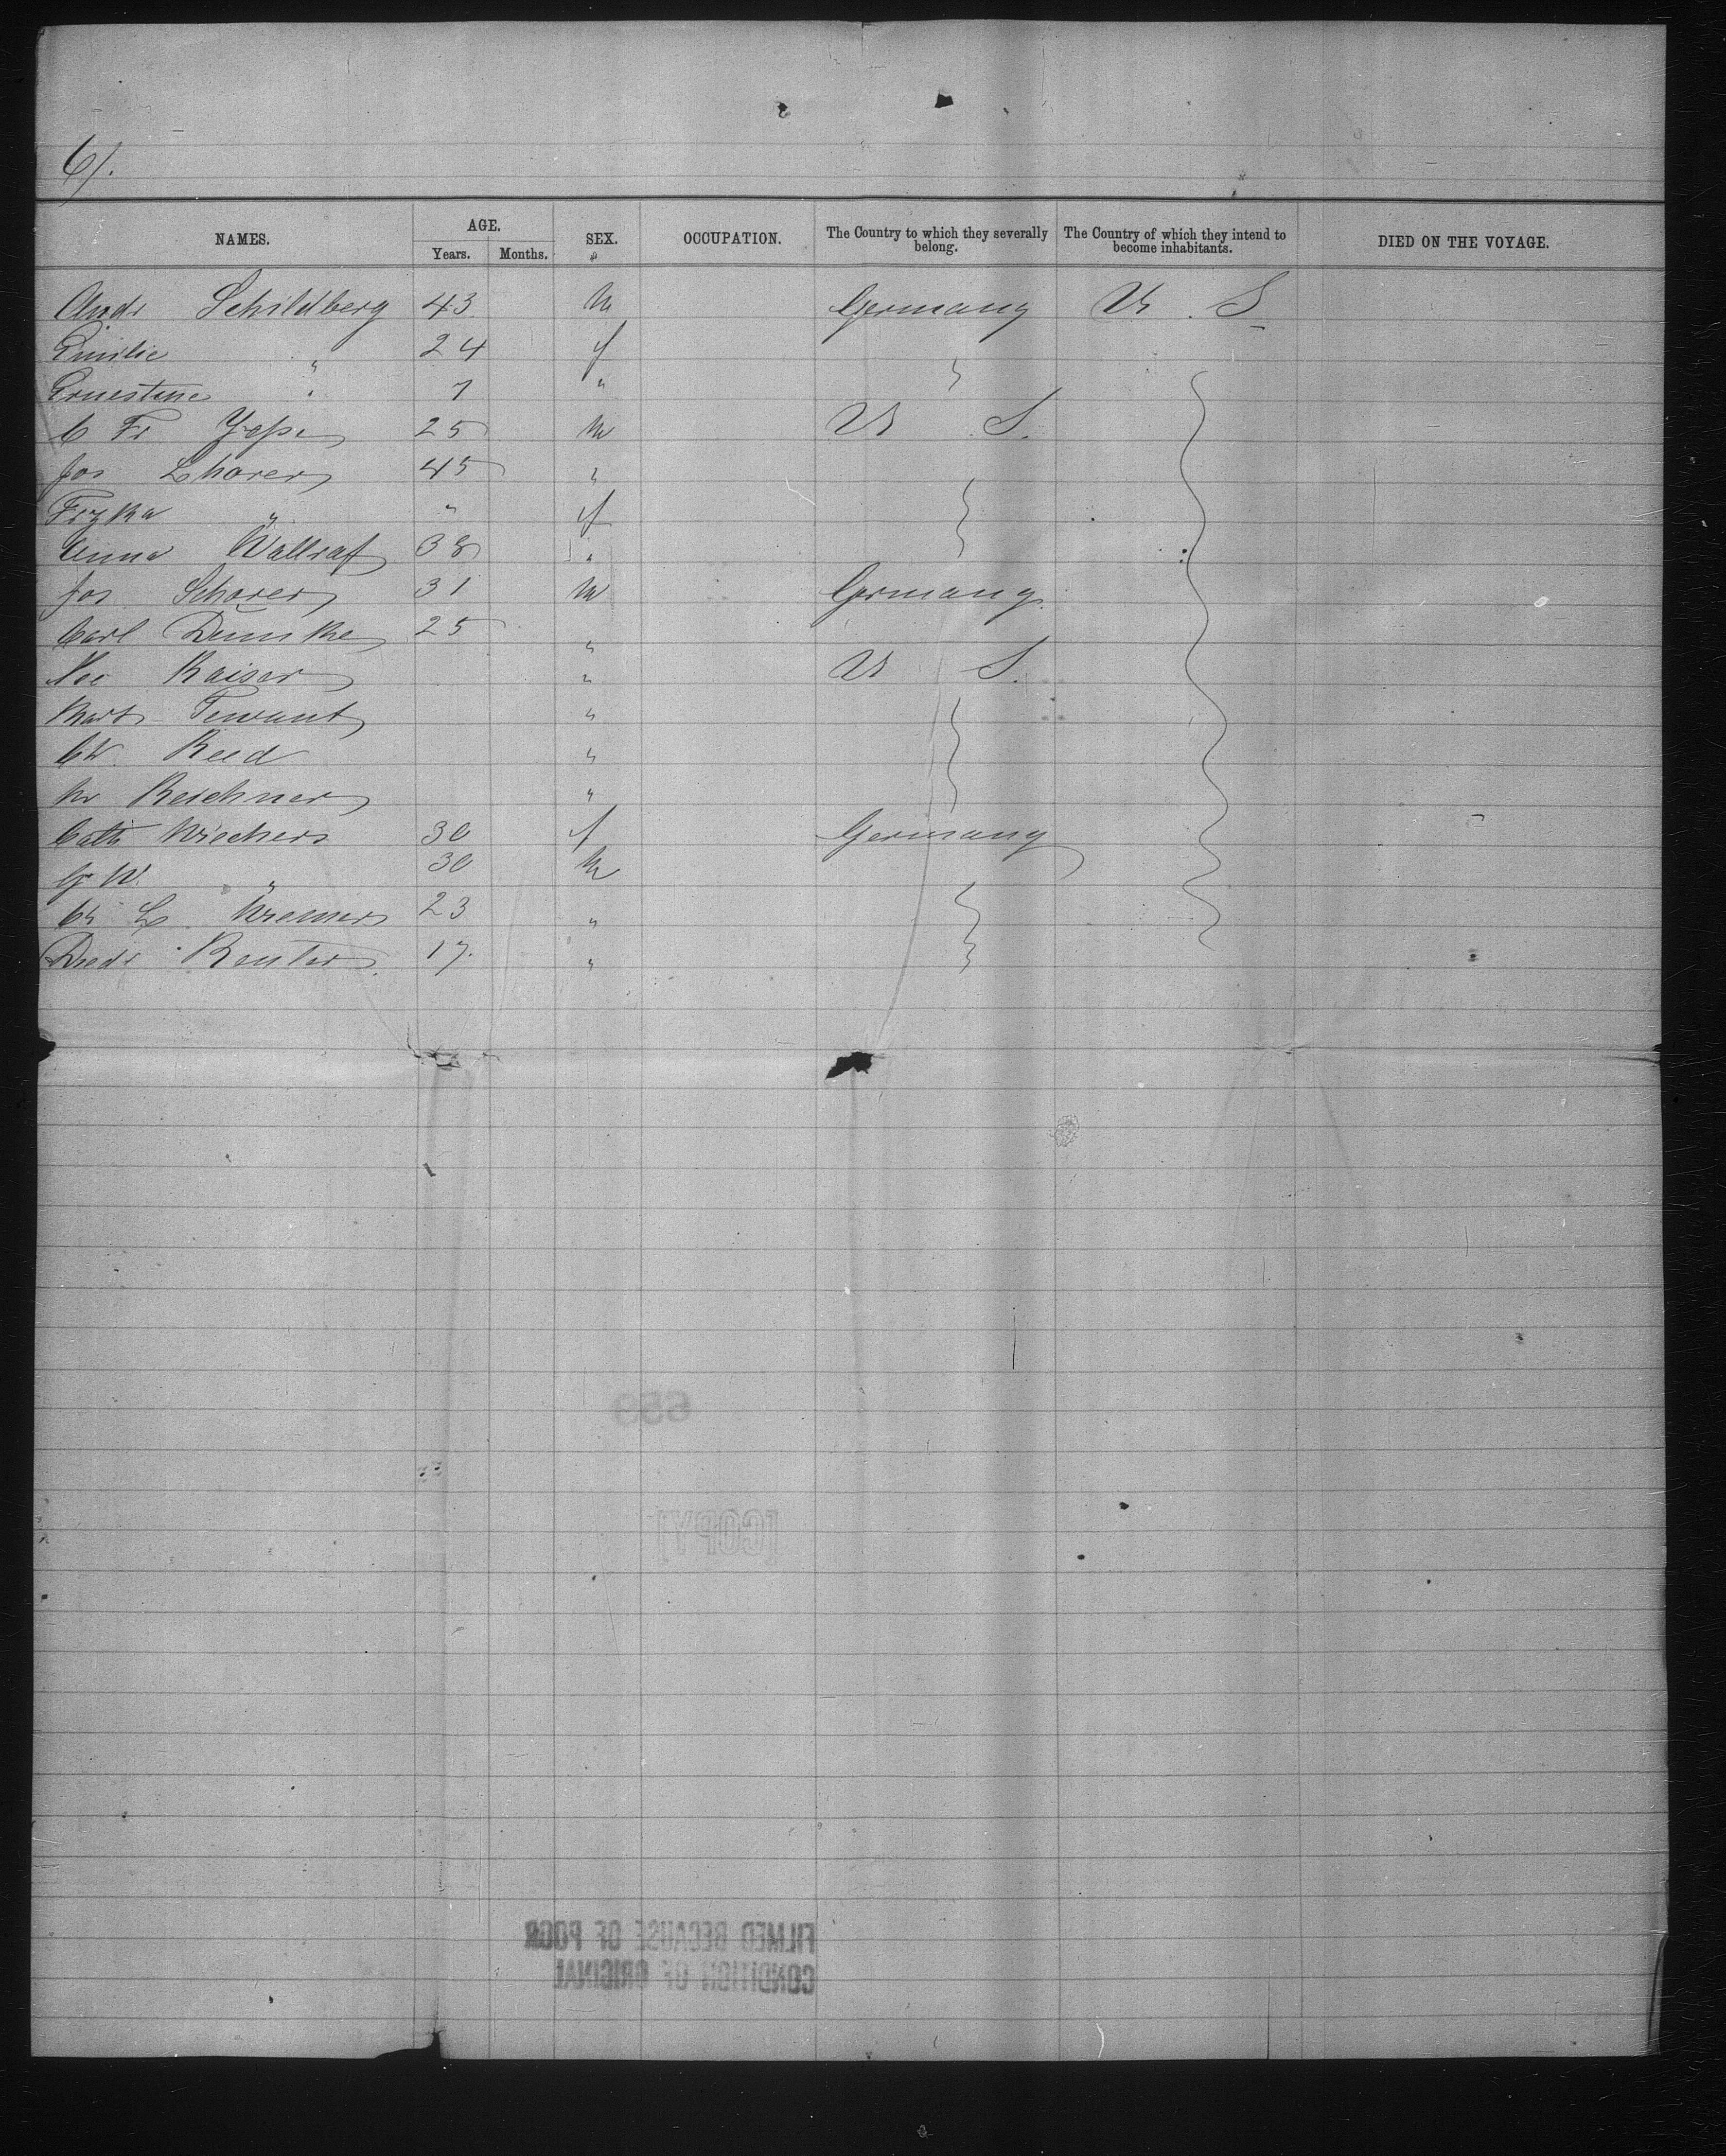 6/.
NAMES. AGE. Years. Months. SEX. OCCUPATION. The Country to which they severally belong. The Country of which they intend to become inhabitants. DIED ON THE VOYAGE.
Andr Schildberg 43 m Germany U. S.
Emilie " 24 f
Ernestine " 7 "
C Fr 25 m U S.
Jos 45 "
" " f
Anna Wallraf 38 "
Jos Scharer 31 m Germany
Carl 25 "
Kaiser " U S.
"
Ch. Reed "
Reichner "
Cath Wiechers 30 f Germany
G W. " 30 m
23 "
Diedr Renter 17. "
659
[COPY]
FILMED BECAUSE OF POOR
CONDITION OF ORIGINAL